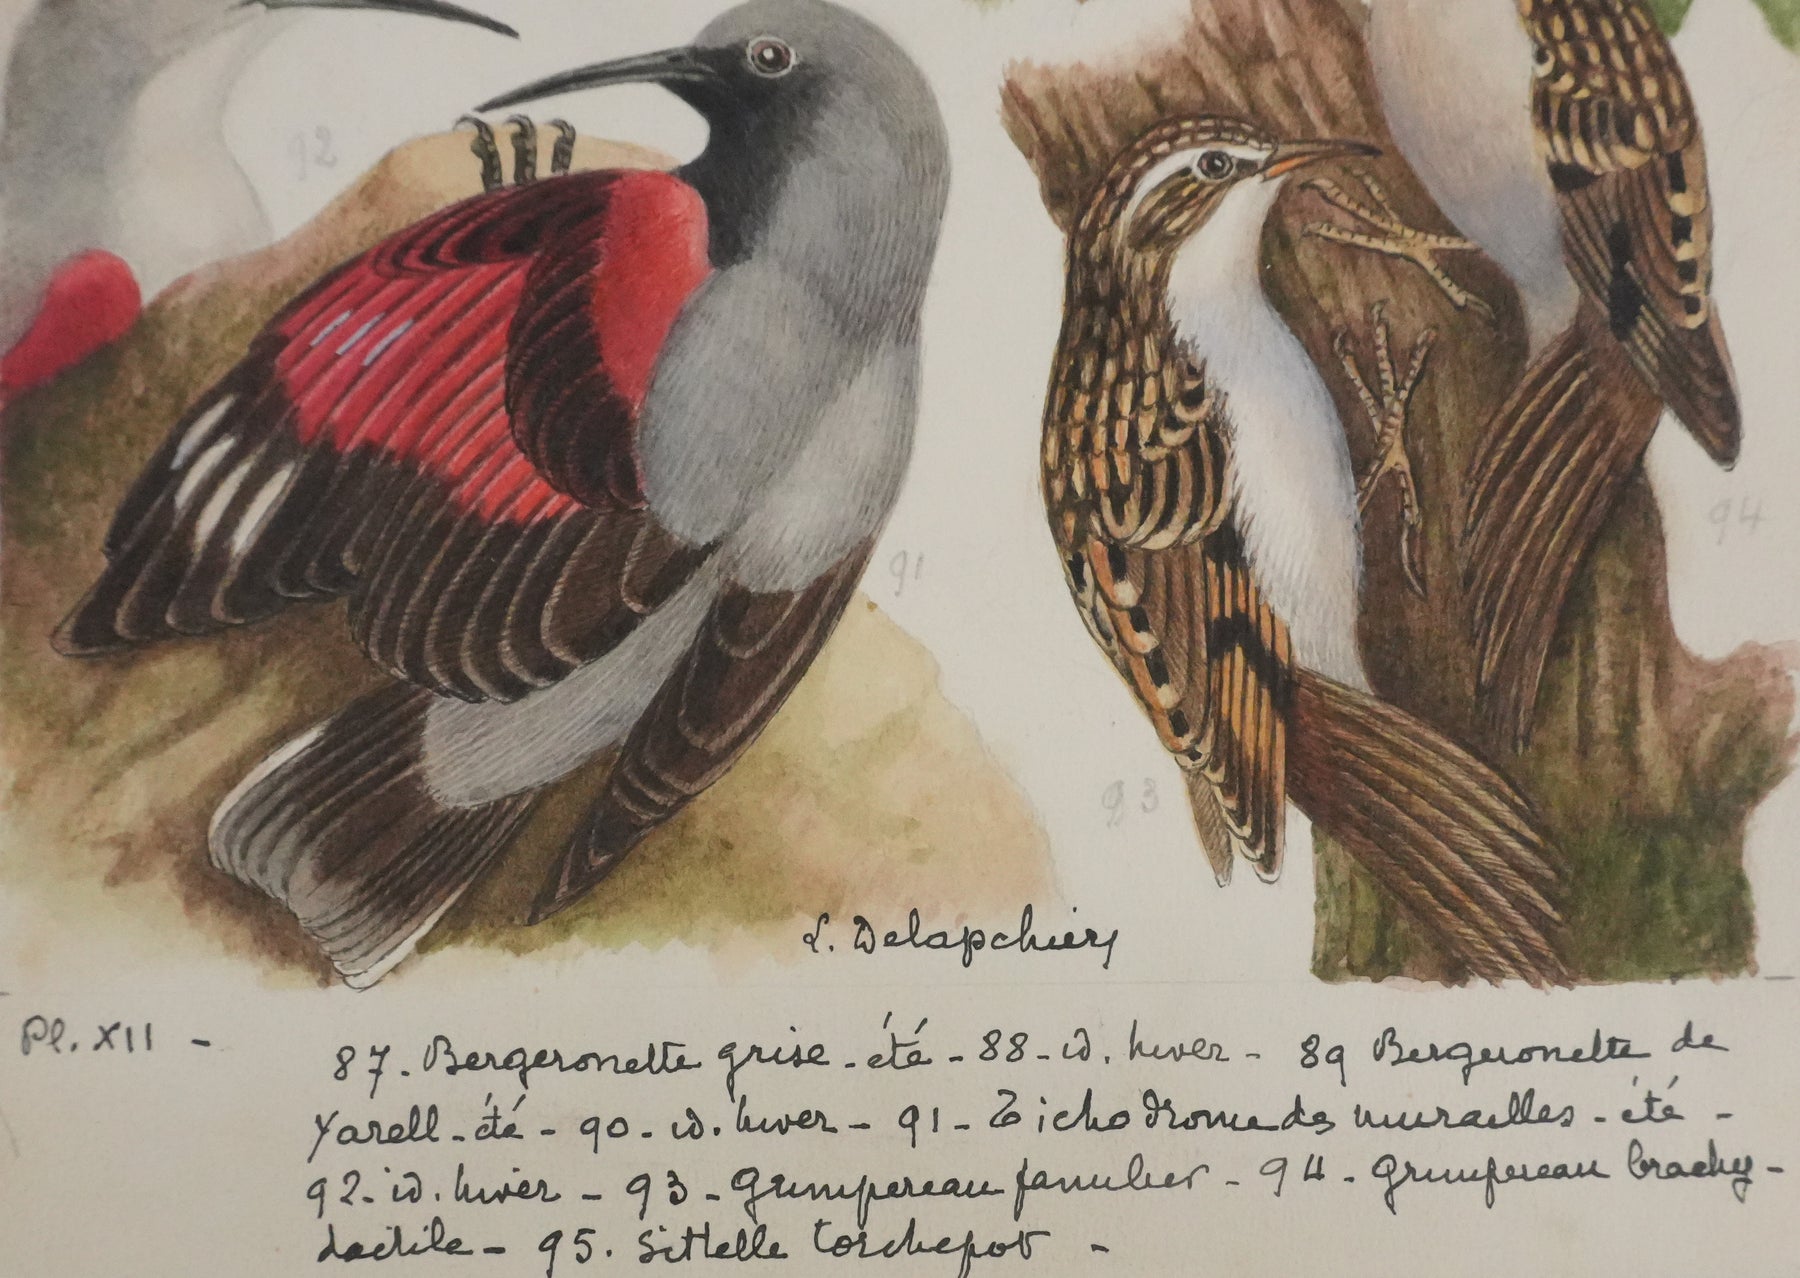 92
91
94
93
L. Delapchier
Pl. XII -
87. Bergeronette grise - été - 88 - id. hiver - 89 Bergeronette de
Yarell - été - 90 - id. hiver - 91 - Tichodrome des murailles - été -
92 - id. hiver - 93 - Grimpereau familier - 94 - Grimpereau brachy-
dactile - 95. Sittelle torchepot -